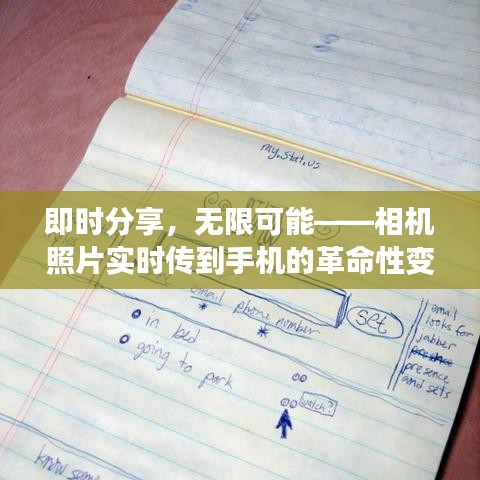 my.stat.us
即时分享，无限可能——相机
照片实时传到手机的革命性变
email phone number
set
in bed
going to park
watch?
email
looks for
jabber
presence
and sets
know some